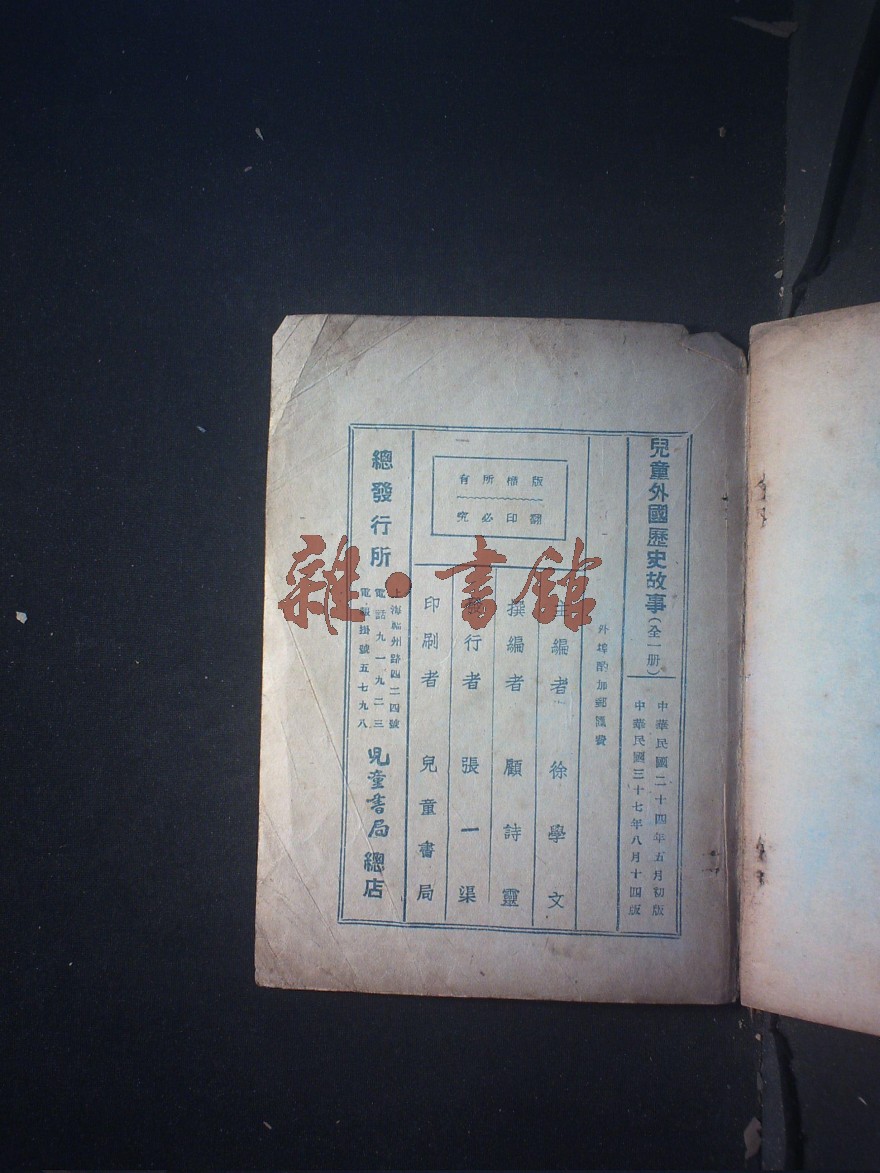 兒童外國歷史故事(全一册)
中華民國二十四年五月初版
中華民國三十七年八月十四版
外埠酌加郵匯費
版權所有
翻印必究
主編者 徐學文
撰編者 顧詩靈
發行者 張一渠
印刷者 兒童書局
總發行所
上海福州路四二四號
電話九一九二三
電報掛號五七九八
兒童書局總店
雜·書館